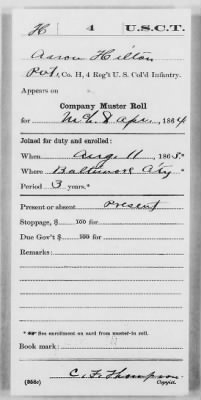 H 4 U.S.C.T.
Aaron Hilton
Pvt, Co. H, 4 Reg't U. S. Col'd Infantry.
Appears on
Company Muster Roll
for Mch & Apr, 1864
Joined for duty and enrolled:
When Aug. 11, 1863.*
Where Baltimore City *
Period 3 years.*
Present or absent Present
Stoppage, $ 100 for
Due Gov't $ 100 for
Remarks:
* See enrollment on card from muster-in roll.
Book mark:
C. F. Thompson
(358c) Copyist.